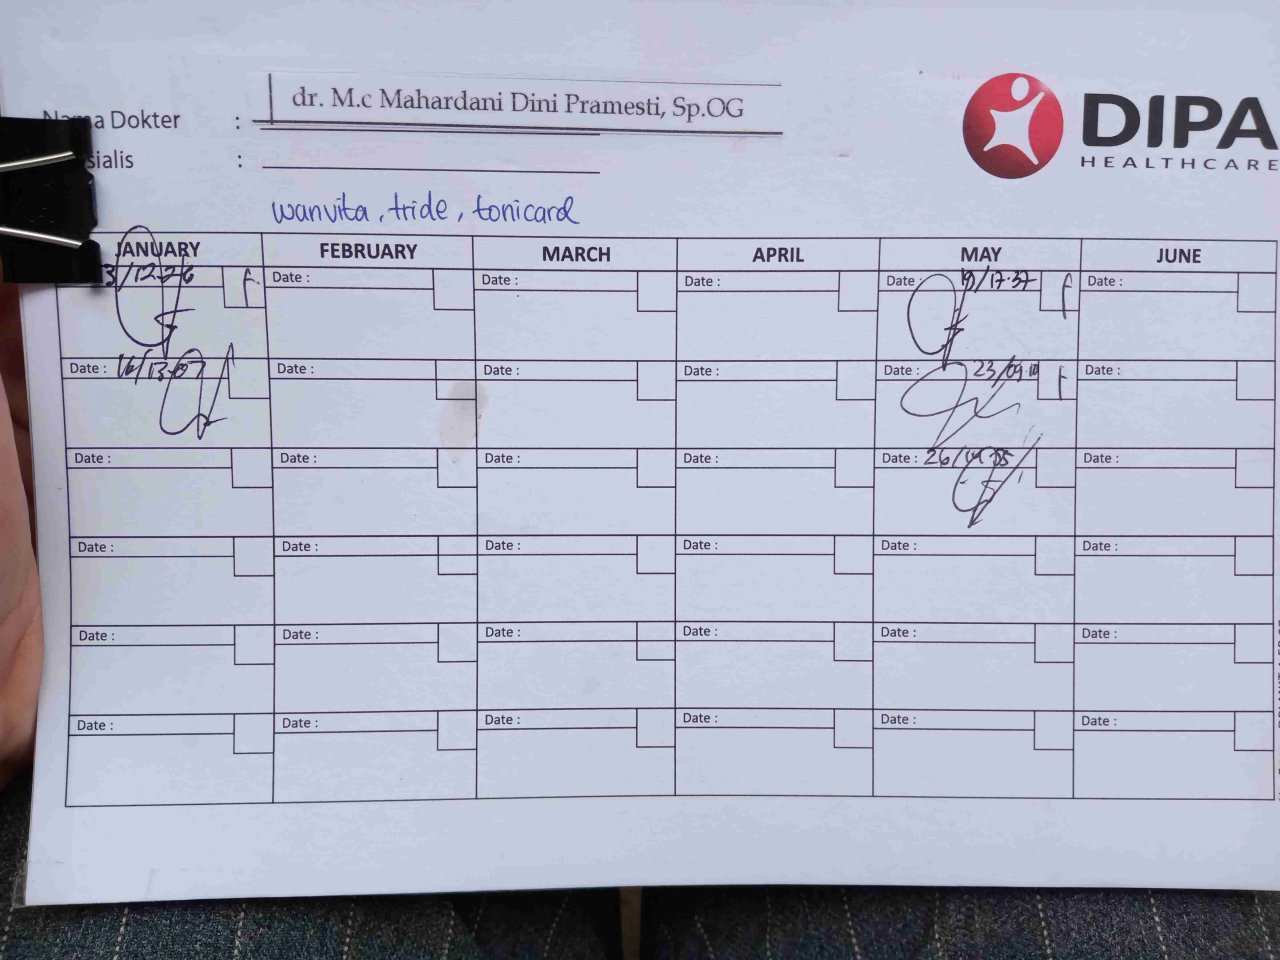 Dokter : dr. M.c Mahardani Dini Pramesti, Sp.OG
:
DIPA
HEALTHCARE
wanvita, tride, tonicard
JANUARY FEBRUARY MARCH APRIL MAY JUNE
3/12.26 f Date : Date : Date : Date : 19/17.37 f Date :
Date : 16/13.07 Date : Date : Date : Date : 23/09.10 f Date :
Date : Date : Date : Date : Date : 26/ Date :
Date : Date : Date : Date : Date : Date :
Date : Date : Date : Date : Date : Date :
Date : Date : Date : Date : Date : Date :